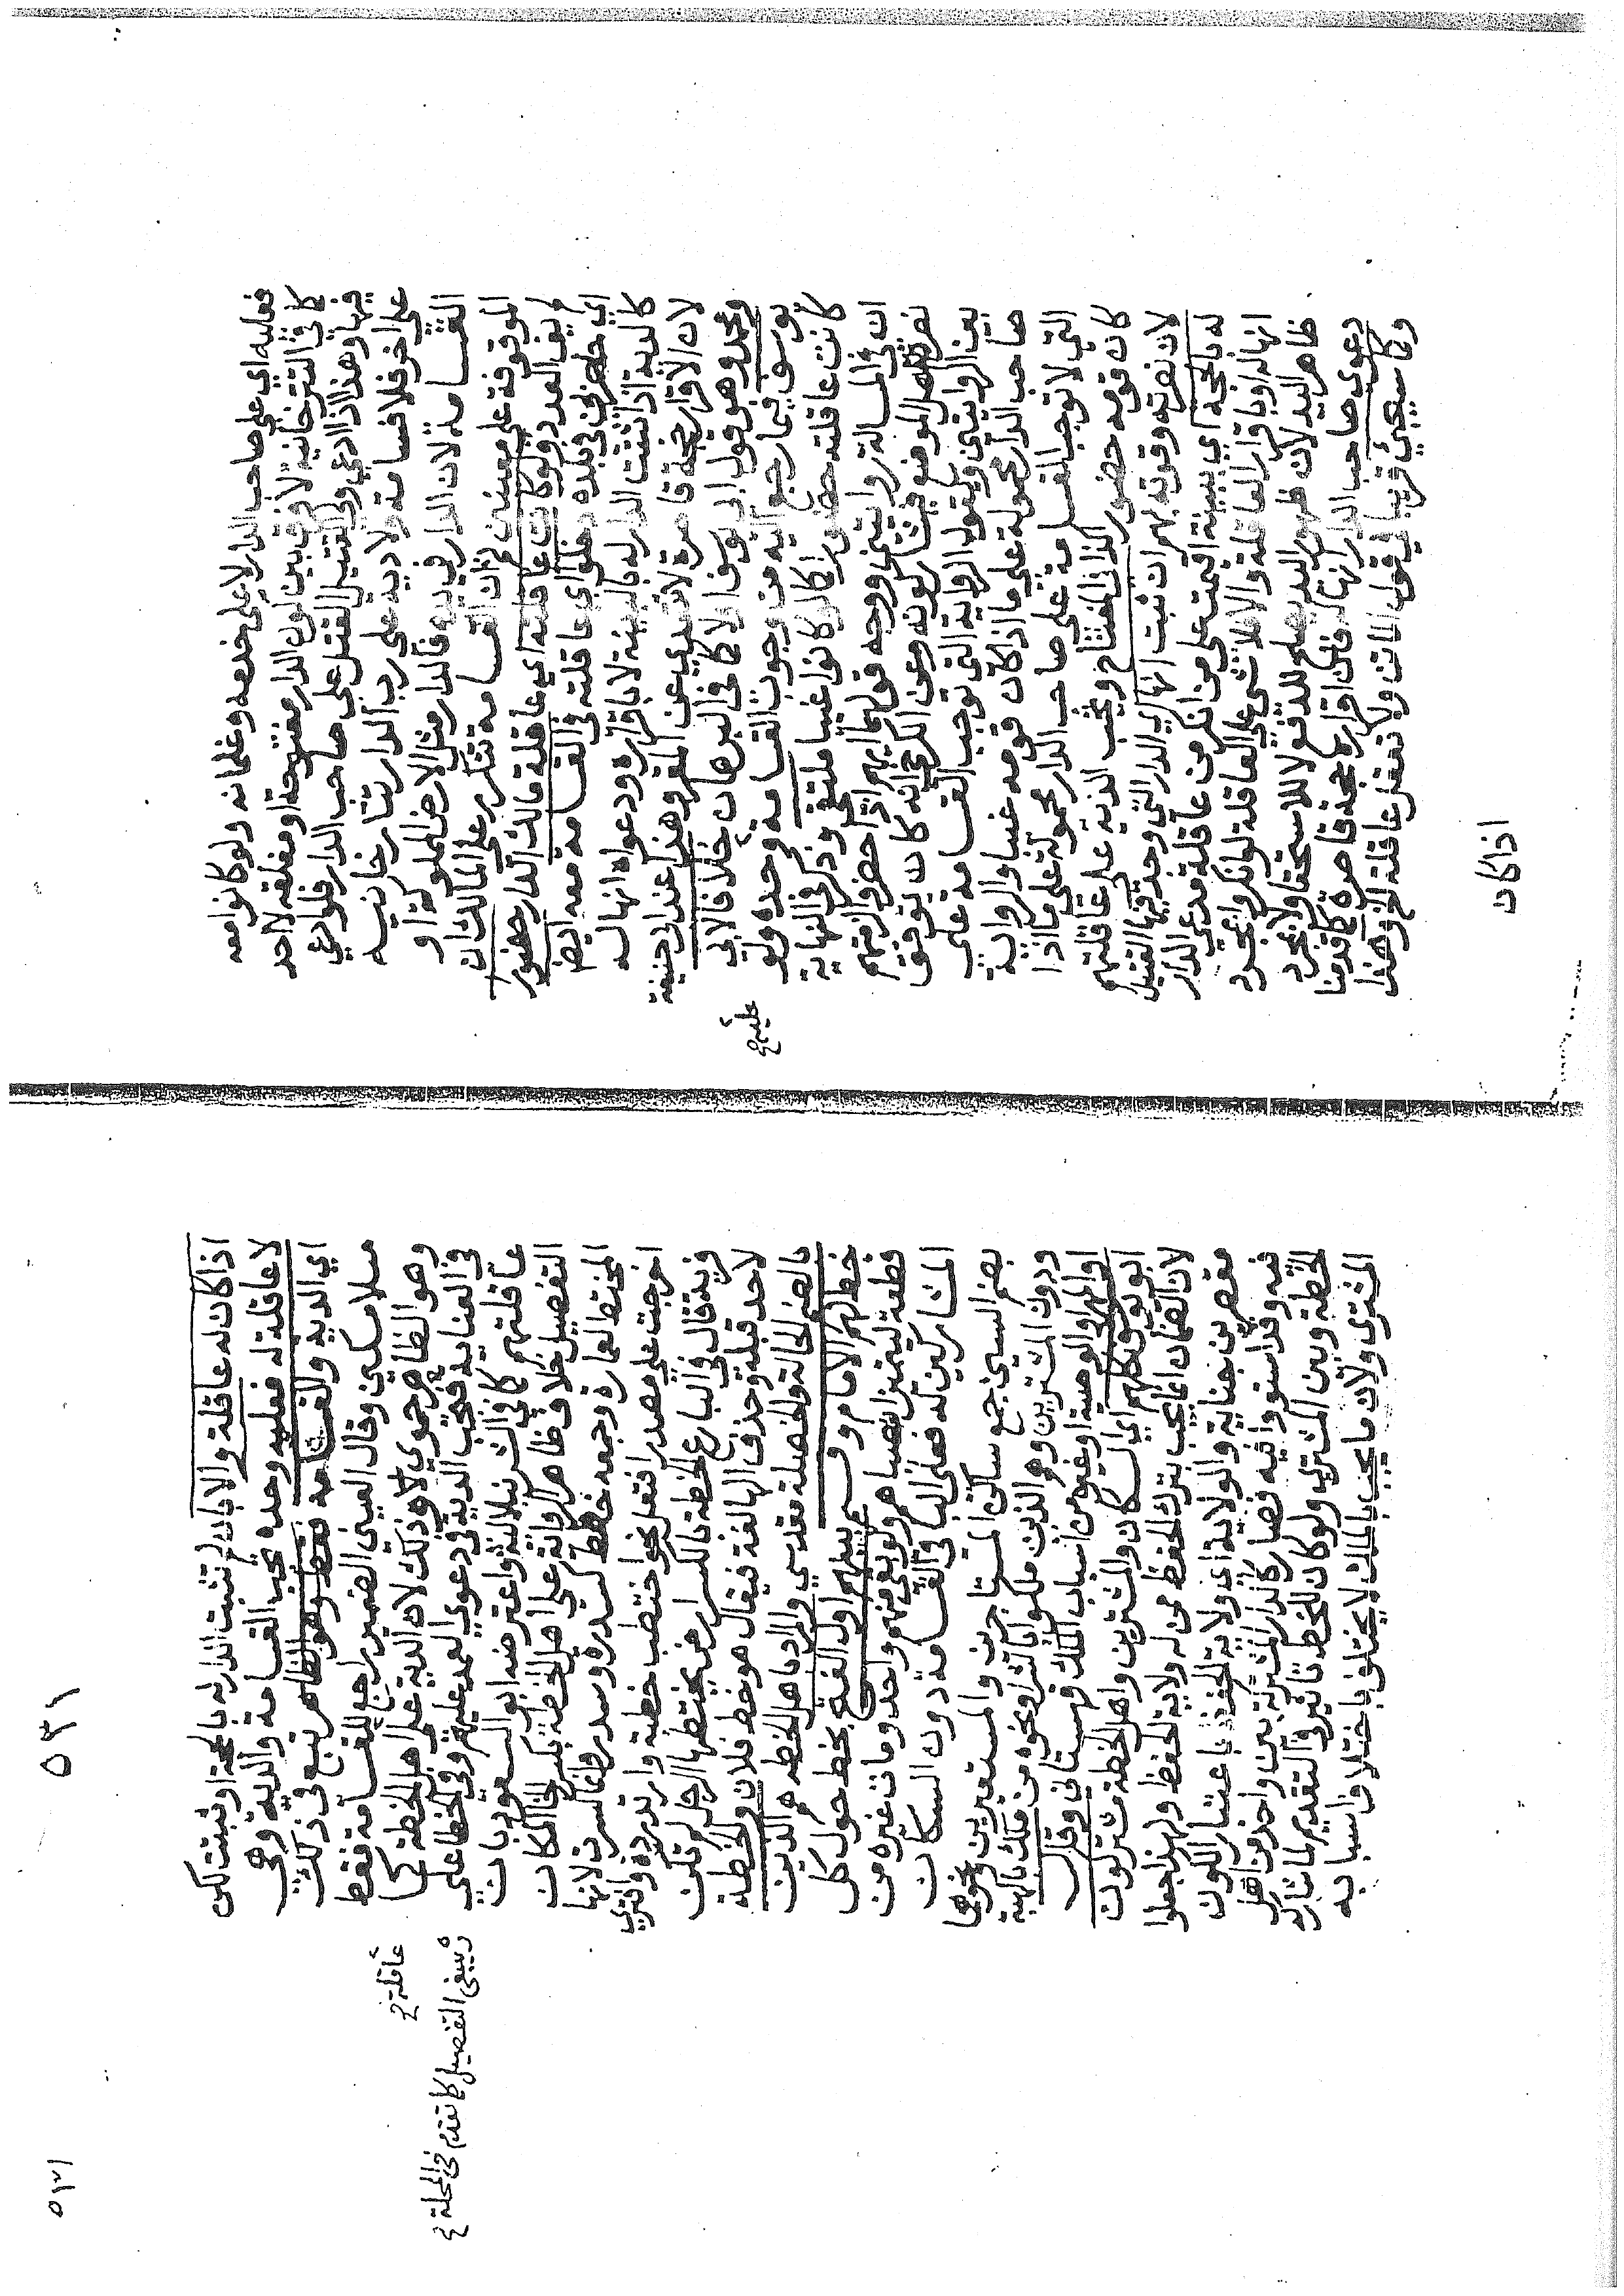 ففعليه اي على صاحب الدار لا على خدمه وغلمانه ولو كانوا معه
كما في التترخانية لا فرق بين كون الدار مفتوحة او مغلقه لا احد
فيها وهذا اذا ادعى ولي القتيل القتل على صاحب الدار فلو ادعي
على اخر فلا قسامة ولا دية على رب الدار تتارخانيه
القسامة لان الدار في يده فالدار مثل الارض المملوكة او
الموقوفة على معينين ثم ان القسامة تتكرر على المالك ان
لم يف العدد ولو كانت عاقلته اي عاقلة مالك الدار حضور
اي حاضرين في بلده دخلوا اي عاقلته في القسامة معه ايضا
كالدية اذا ثبتت الدار له بالبينة لا باقراره ودعواه انها له
لان الاقرار حجة قاصرة لا تتعدي عن المقر وهذا عند ابي حنيفة
ومحمد وهو قول ابي يوسف اولا كما في البرهان خلافا لابي
يوسف فيما رجع اليه من وجوب القسامة عليه وحده ولو
كانت عاقلته حضورا كما لو كانوا غيبا ملتقى وذكر في النهاية
ان في المسالة روايتين ووجه قولهما انهم اذا حضروا لزمتهم
نصرة الموضع فيشاركونه وعن الكرخي انه كان يوفق
بين الروايتين ويقول الرواية التي توجب القسامة على
صاحب الدار محمولة على ما اذا كان قومه غيبا والرواية
التي لا توجب القسامة على صاحب الدار محمولة على ما اذا
كان قومه حضور كذا في المفتاح وتجب الدية على عاقلتهم
لان نصرته وقوته بهم ان ثبت انها اي الدار التي وجد فيها القتيل
له بالحجة اي ببينة اقيمت على من انكر من عاقلة مدعي الدار
انها له او باقرار العاقلة والا فلا شي على العاقلة لو انكروا بمجرد
ظاهر اليد لانه ظهور اليد يصلح للدفع لا للاستحقاق ولا بمجرد
دعوى صاحب الدار انها له فان اقراره حجة قاصرة كما قدمنا
وكما سيجيئ قريبا في قول الماتن ولا تعقل عاقلة الخ وهذا
اذا كان
٥٣١
اذا كان له عاقلة والا بان لم تثبت الدار له بالحجة او ثبتت لكن
لا عاقلة له فعليه وحده تجب القسامة والدية وهي
اي الدية والقسامة فقط وهو الظاهر تبع في ذلك
منلا مسكين وقال العيني الضمير راجع للقسامة فقط
وهو الظاهر حموي لان ذلك لان الدية على اهل الخطة كما
في العناية فتجب الدية في دعوي العمد عليهم وفي الخطا على
عاقلتهم كما في الشرنبلالية واعترضه ابو السعود بان
التفصيل خلاف ظاهر الرواية على اهل الخطة بكسر الخا المكان
المختط لعمارة وجمعه خطط كسدرة وسدر وانما كسرت لانها
اخرجت على مصدر افتعل نحو اختطب خطبة وارتد ردة وافترى
فرية قال في البارع الخطة بالكسر ارض يختطها الرجل لم تكن
لاحد قبله وحذف الها لغة فيقال هو خط فلان والخطة
بالضم الحالة والخصلة مقدسي والمراد باهل الخطة هم الذين
خط لهم الامام وقسم بينهم اول الفتح بخط حول كل
قطعة ليتميز انصباهم ولو بقى منهم واحد ومات غيره من
المشاركين له فعلى الباقي القسامة دون السكان
بضم السين جمع ساكن المستاجرين والمستعيرين ونحوهما
ودون المشترين وهم الذين ملكوا بالشرا ونحوه من ملك بالهبة
او المهر او الوصية او غيره من اسباب الملك قهستاني وقال
ابو يوسف كلهم اي السكان والمشترين واهل الخطة مشتركون
لان الضمان انما يجب بترك الحفظ من له ولاية الحفظ ولهذا جعلوا
مقصرين جناية والولاية اي ولاية الحفظ باعتبار الكون
فيه وقد استووا فيه فصار كالدار المشتركة بين واحد من اهل
الخطة وبين المشتري ولو كان للخط تاثير في التقديم لما شاركه
المشترى ولان ما يجب بالملك لا يختلف باختلاف اسبابه
عاقلة صح
وينبغي التفصيل كما تقدم في المحلة صح
٥٣١